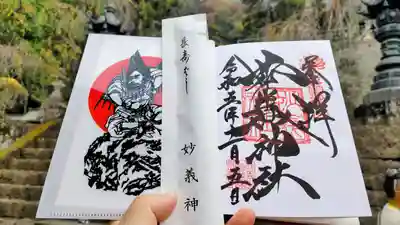 奉拝
妙義神社
令和五年十一月五日
長寿ばし
妙義神